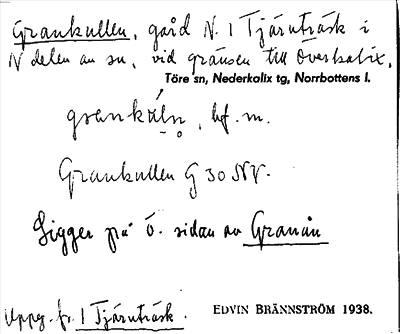 Grankullen, gård N. 1 Tjärnträsk i
N delen av sn, vid gränsen till Överkalix.
Töre sn, Nederkalix tg, Norrbottens l.
grankäln, bf. m.
Grankullen G 30 NV.
Ligger på ö. sidan av Granån
Uppg. fr. 1 Tjärnträsk.
EDVIN BRÄNNSTRÖM 1938.